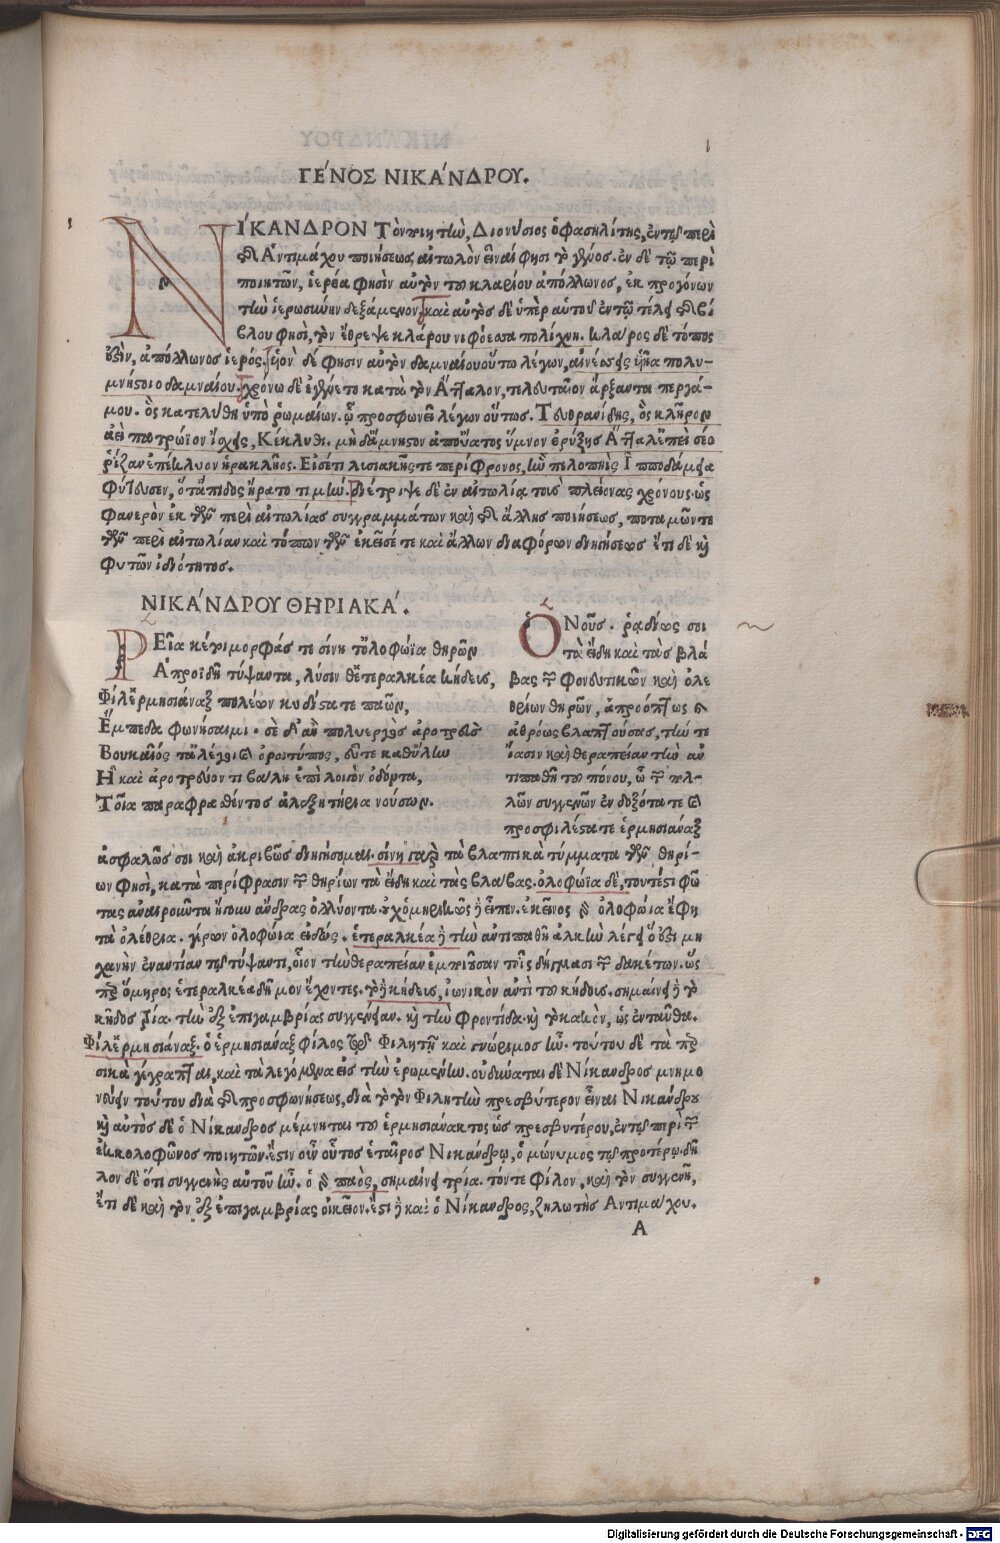 1
ΓΕ´ΝΟΣ ΝΙΚΑ´ΝΔΡΟΥ.
ΝΙΚΑΝΔΡΟΝ Τὸν ποιητὴν, Διονύσιος ὁ φασηλίτης, ἐν τῷ περὶ
τῆς Ἀντιμάχου ποιήσεως αἰτωλὸν εἶναί φησι τὸ γένος. ἐν δὲ τῷ περὶ
ποιητῶν, ἱερέα φησὶν αὐτὸν τοῦ κλαρίου ἀπόλλωνος, ἐκ προγόνων
τὴν ἱερωσύνην δεξάμενον, καὶ αὐτὸς δὲ ὑπὲρ αὑτοῦ ἐν τῷ τέλει τῆς βί
βλου φησὶ, τὸν ἔθρεψε κλάρου νιφόεσσα πολίχνη. κλάρος δὲ τόπος
ἐστὶν, ἀπόλλωνος ἱερός. υἱὸν δέ φησιν αὐτὸν δαμναίου οὕτω λέγων, αἰνέσεις υἱῆα πολυ-
μνήστοιο δαμναίου. χρόνῳ δὲ ἐγένετο κατὰ τὸν Ἄτταλον, τελευταῖον ἄρξαντα περγά-
μου. ὃς κατελύθη ὑπὸ ῥωμαίων. ᾧ προσφωνεῖ λέγων οὕτως. Τευθρανίδης, ὃς κλῆρον
ἀεὶ πατρώϊον ἴσχεις, Κέκλυθι. μὴ δ᾽ ἄμνηστον ἀπ᾽ οὔατος ὕμνον ἐρύξῃς Ἄτταλ᾽ ἐπεὶ σέο
ῥίζαν ἐπέκλυον ἡρακλῆος. Εἰσέτι λυσιδίκης τε περίφρονος, ἣν πελοπηῒς Ἱπποδάμεια
Φύτευσεν, ὅτ᾽ ἀπίδος ἤρατο τιμήν. διέτριψε δὲ ἐν αἰτωλίᾳ τοὺς πλείονας χρόνους. ὡς
φανερὸν ἐκ τῶν περὶ αἰτωλίας συγγραμμάτων καὶ τῆς ἄλλης ποιήσεως, ποταμῶν τε
τῶν περὶ αἰτωλίαν καὶ τόπων τῶν ἐκεῖσέ τε καὶ ἄλλων διαφόρων διηγήσεως ἔτι δὲ καὶ
φυτῶν ἰδιότητος.
ΝΙΚΑ´ΝΔΡΟΥ ΘΗΡΙΑΚΑ´.
ΡΕῖα κέ τοι μορφάς τε σίνη τ᾽ ὀλοφώϊα θηρῶν
Ἀπροϊδῆ τύψαντα, λύσιν θ᾽ ἑτεραλκέα κήδευς,
Φίλ᾽ Ἑρμησιάναξ πολέων κυδίστατε παῶν,
Ἔμπεδα φωνήσαιμι. σὲ δ᾽ ἂν πολύεργος ἀροτρεὺς
Βουκαῖός τ᾽ ἀλέγοι καὶ ὀροιτύπος, εὖτε καθ᾽ ὕλην
Ἢ καὶ ἀροτρεύοντι βάλῃ ἔπι λοιγὸν ὀδόντα,
Τοῖα περιφρασθέντος ἀλεξητήρια νούσων.
ὁ Νοῦς. ῥᾳδίως σοι
τὰ εἴδη καὶ τὰς βλά
βας τῶν φονευτικῶν καὶ ὀλε
θρίων θηρῶν, ἀπροόπτως καὶ
ἀθρόως βλαπτούσας, τήν τε
ἴασιν καὶ θεραπείαν τὴν ἀν
τιπαθῆ τοῦ πόνου, ὦ τῶν πολ-
λῶν συγγενῶν ἐνδοξότατε καὶ
προσφιλέστατε ἑρμησιάναξ
ἀσφαλῶς σοι καὶ ἀκριβῶς διηγήσομαι. σίνη γὰρ τὰ βλαπτικὰ τύμματα τῶν θηρί-
ων φησὶ, κατὰ περίφρασιν τῶν θηρίων τὰ εἴδη καὶ τὰς βλάβας. ὀλοφώϊα δὲ, τουτέστι φῶ
τας ἀναιροῦντα ἤτοι ἄνδρας ὀλλύοντα. οὐχ ὁμηρικῶς δὲ εἶπεν. ἐκεῖνος γὰρ ὀλοφώια ἔφη
τὰ ὀλέθρια. γέρων ὀλοφώια εἰδώς. ἑτεραλκέα δὲ τὴν ἀντιπαθῆ ἀλκὴν λέγει ὅ ἐστι μη
χανὴν ἐναντίαν τῷ τύψαντι, οἷον τὴν θεραπείαν ἐμποιοῦσαν τοῖς δήγμασι τῶν δακέτων. ὡς
παρ᾽ ὅμηρος ἑτεραλκέα δῆμον ἔχοντες. τὸ δὲ κήδευς, ἰωνικὸν ἀντὶ τοῦ κήδους. σημαίνει δὲ τὸ
κῆδος τρία. τὴν ἐξ ἐπιγαμβρίας συγγένειαν. καὶ τὴν φροντίδα. καὶ τὸ κακὸν, ὡς ἐνταῦθα.
Φίλ᾽ Ἑρμησιάναξ. ὁ ἑρμησιάναξ φίλος τῷ Φιλητᾷ καὶ γνώριμος ἦν. τούτου δὲ τὰ περ
σικὰ γέγραπται, καὶ τὰ λεγόμενα εἰς τὴν ἐρωμένην. οὐ δύναται δὲ Νίκανδρος μνημο
νεύειν τούτου διὰ τῆς προσφωνήσεως, διὰ τὸ τὸν Φιλητὴν πρεσβύτερον εἶναι Νικάνδρου
καὶ αὐτὸς δὲ ὁ Νίκανδρος μέμνηται τοῦ ἑρμησιάνακτος ὡς πρεσβυτέρου, ἐν τῷ περὶ τῶν
ἐκ κολοφῶνος ποιητῶν. ἔστιν οὖν οὗτος ἑταῖρος Νικάνδρῳ, ὁμώνυμος τῷ προτέρῳ. δῆ
λον δὲ ὅτι συγγενὴς αὐτοῦ ἦν. ὁ γὰρ παὸς, σημαίνει τρία. τόν τε φίλον, καὶ τὸν συγγενῆ,
ἔτι δὲ καὶ τὸν ἐξ ἐπιγαμβρίας οἰκεῖον. ἔστι δὲ καὶ ὁ Νίκανδρος, ζηλωτὴς Ἀντιμάχου.
A
Digitalisierung gefördert durch die Deutsche Forschungsgemeinschaft - DFG